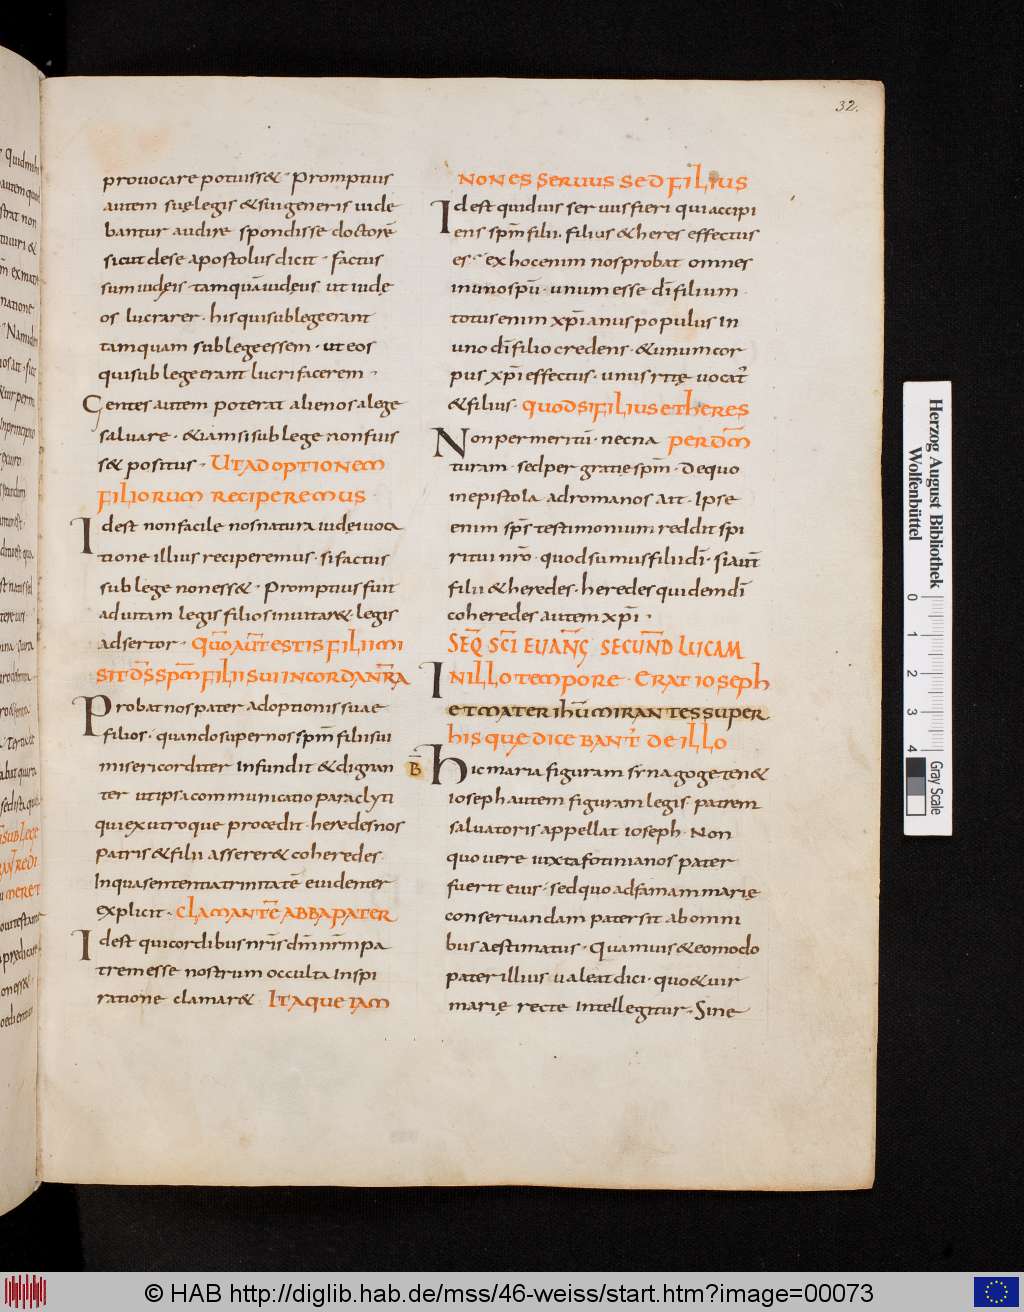 32.
provocare potuiss& · Promptius
autem suę legis & sui generis vide
bantur audire spondisse doctorē
sicut de se apostolus dicit · factus
sum iudęis · tamquā iudęus ut iudę
os lucrarer · his qui sub lege erant
tamquam sub lege essem · ut eos
qui sub lege erant lucri facerem ·
Gentes autem poterat alienos a lege
salvare · & iam si sub lege non fuis
s& positus · UT ADOPTIONEM
FILIORUM RECIPEREMUS
Id est non facile nos natura iudei voca
tione illius reciperemus · si factus
sub lege non ess& · Promptius fuit
ad vitam legis filios invitar& · legis
adsertor · QUŌ AUT̄ ESTIS FILII MI
SIT D̄S SPM̄ FILII SUI IN CORDA N̄RA
Probat nos pater adoptionis suae
filios · quando super nos spm̄ filii sui
misericorditer infundit & digran
ter ut ipsa communicatio paraclyti
qui ex utroque procedit · heredes nos
patris & filii asserer& coheredes
In qua sententia trinitatē evidenter
explicit · CLAMANTĒ ABBA PATER
Id est qui cordibus nr̄is dn̄m nr̄m pa
trem esse nostrum occulta inspi
ratione clamar& · ITAQUE IAM
NON ES SERVUS SED FILIUS
Id est quid uis servus fieri qui accipi
ens spm̄ filii · filius & heres effectus
es · ex hoc enim nos probat omnes
in uno spū · unum esse dī filium ·
totus enim xp̄ianus populus in
uno dī filio credens · & unum cor
pus xp̄i effectus · unus rite vocat̄
& filius · QUOD SI FILIUS ET HERES
Non per meritū · nec na PER DM̄
turam · sed per gratię spm̄ · De quo
in epistola ad romanos ait · Ipse
enim sp̄s testimonium reddit spi
ritui nr̄o · quod sumus filii dī · si aut̄
filii & heredes · heredes quidem dī
coheredes autem xp̄i ·
SEQ̄ SC̄I EVANḠ SECUND̄ LUCAM
IN ILLO TEMPORE · ERAT IOSEPH
ET MATER IHŪ MIRANTES SUPER
HIS QUĘ DICEBANT̄ DE ILLO
B̄ Hic maria figuram synagoge ten&
ioseph autem figuram legis · patrem
salvatoris appellat ioseph · Non
quo vere iuxta fotinianos pater
fuerit eius · sed quo ad famam marię
conservandam pater sit ab omni
bus aestimatus · Quamvis & eo modo
pater illius valeat dici · quo & vir
marię recte intellegitur · Sine
Herzog August Bibliothek
Wolfenbüttel
0 1 2 3 4
Gray Scale
© HAB http://diglib.hab.de/mss/46-weiss/start.htm?image=00073